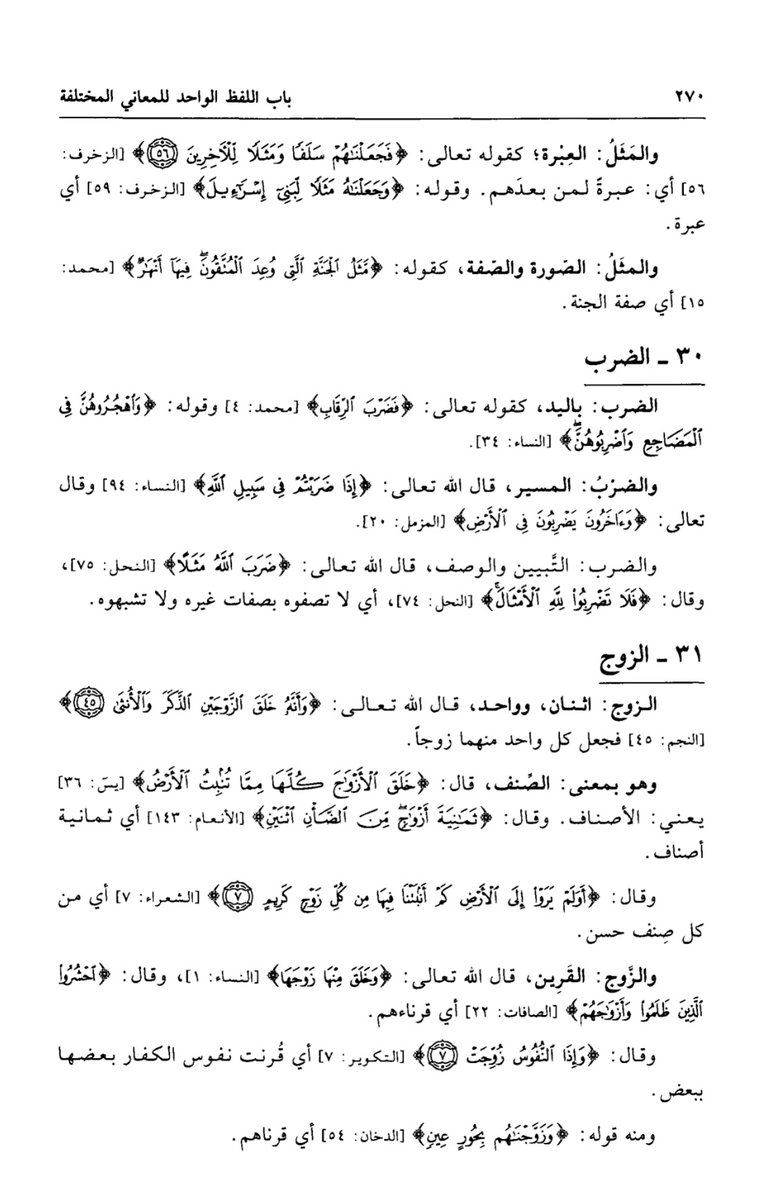 ٢٧٠ باب اللفظ الواحد للمعاني المختلفة
والمَثَلُ: العِبْرة؛ كقوله تعالى: ﴿فَجَعَلْنَٰهُمْ سَلَفًا وَمَثَلًا لِّلْـَٔاخِرِينَ ٥٦﴾ [الزخرف:
٥٦] أي: عبرةً لمن بعدَهم. وقوله: ﴿وَجَعَلْنَٰهُ مَثَلًا لِّبَنِىٓ إِسْرَٰٓءِيلَ﴾ [الزخرف: ٥٩] أي
عبرة.
والمثلُ: الصّورة والصّفة، كقوله: ﴿مَّثَلُ ٱلْجَنَّةِ ٱلَّتِى وُعِدَ ٱلْمُتَّقُونَ ۖ فِيهَآ أَنْهَٰرٌ﴾ [محمد:
١٥] أي صفة الجنة.
٣٠ ـ الضرب
الضرب: باليد، كقوله تعالى: ﴿فَضَرْبَ ٱلرِّقَابِ﴾ [محمد: ٤] وقوله: ﴿وَٱهْجُرُوهُنَّ فِى
ٱلْمَضَاجِعِ وَٱضْرِبُوهُنَّ ۖ﴾ [النساء: ٣٤].
والضرْبُ: المسير، قال الله تعالى: ﴿إِذَا ضَرَبْتُمْ فِى سَبِيلِ ٱللَّهِ﴾ [النساء: ٩٤] وقال
تعالى: ﴿وَءَاخَرُونَ يَضْرِبُونَ فِى ٱلْأَرْضِ﴾ [المزمل: ٢٠].
والضرب: التَّبيين والوصف، قال الله تعالى: ﴿ضَرَبَ ٱللَّهُ مَثَلًا﴾ [النحل: ٧٥]،
وقال: ﴿فَلَا تَضْرِبُوا۟ لِلَّهِ ٱلْأَمْثَالَ ۚ﴾ [النحل: ٧٤]، أي لا تصفوه بصفات غيره ولا تشبهوه.
٣١ ـ الزوج
الزوج: اثنان، وواحد، قال الله تعالى: ﴿وَأَنَّهُۥ خَلَقَ ٱلزَّوْجَيْنِ ٱلذَّكَرَ وَٱلْأُنثَىٰ ٤٥﴾
[النجم: ٤٥] فجعل كل واحد منهما زوجاً.
وهو بمعنى: الصِّنف، قال: ﴿خَلَقَ ٱلْأَزْوَٰجَ كُلَّهَا مِمَّا تُنۢبِتُ ٱلْأَرْضُ﴾ [يسَ: ٣٦]
يعني: الأصناف. وقال: ﴿ثَمَٰنِيَةَ أَزْوَٰجٍ ۖ مِّنَ ٱلضَّأْنِ ٱثْنَيْنِ﴾ [الأنعام: ١٤٣] أي ثمانية
أصناف.
وقال: ﴿أَوَلَمْ يَرَوْا۟ إِلَى ٱلْأَرْضِ كَمْ أَنۢبَتْنَا فِيهَا مِن كُلِّ زَوْجٍ كَرِيمٍ ٧﴾ [الشعراء: ٧] أي من
كل صِنف حسن.
والزَّوج: القَرِين، قال الله تعالى: ﴿وَخَلَقَ مِنْهَا زَوْجَهَا﴾ [النساء: ١]، وقال: ﴿ٱحْشُرُوا۟
ٱلَّذِينَ ظَلَمُوا۟ وَأَزْوَٰجَهُمْ﴾ [الصافات: ٢٢] أي قرناءهم.
وقال: ﴿وَإِذَا ٱلنُّفُوسُ زُوِّجَتْ ٧﴾ [التكوير: ٧] أي قُرنت نفوس الكفار بعضها
ببعض.
ومنه قوله: ﴿وَزَوَّجْنَٰهُم بِحُورٍ عِينٍ﴾ [الدخان: ٥٤] أي قرناهم.